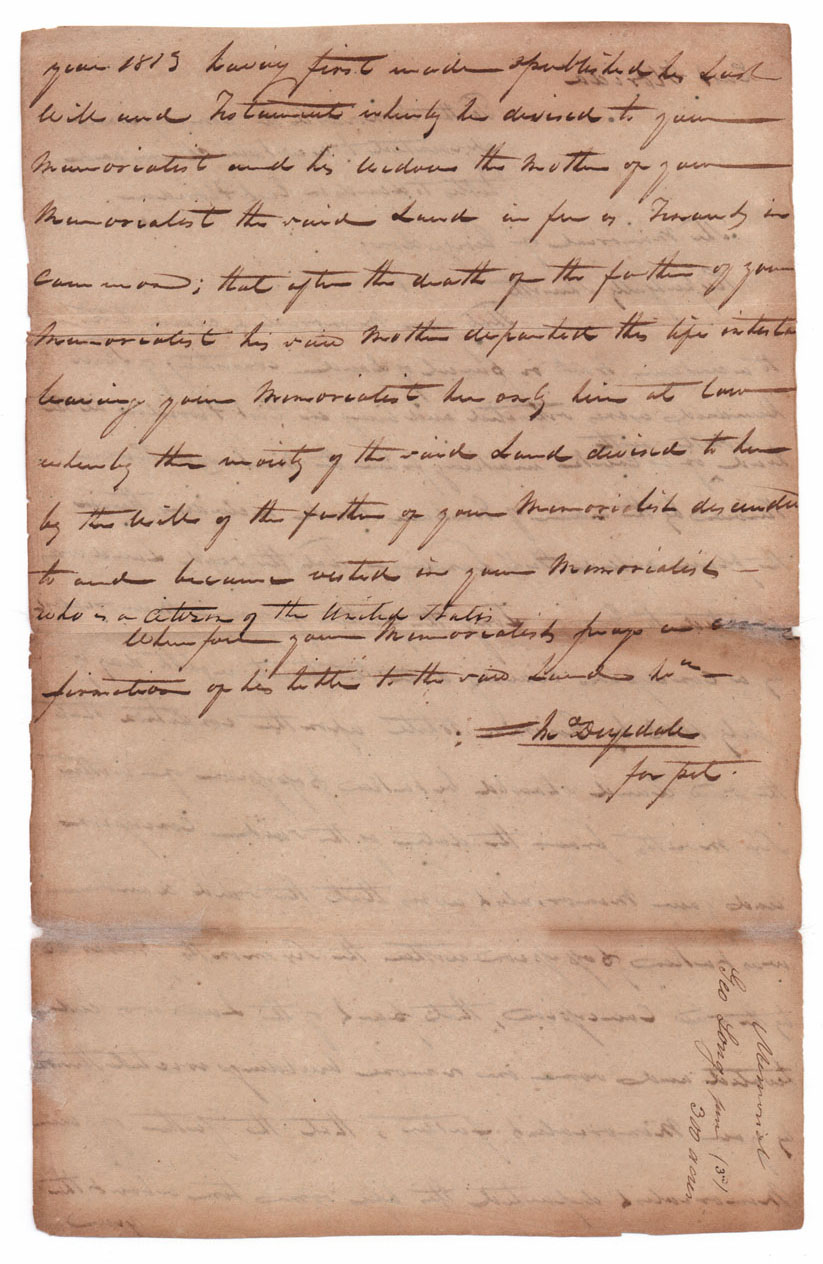 year 1813 having first made & published his Last
Will and Testament whereby he devised to your
Memorialist and his Widow the Mother of your
Memorialist the said Land in fee as Tenants in
common; that after the death of the father of your
Memorialist his said Mother departed this life intesta
leaving your Memorialist her only heir at law
whereby the moiety of the said Land devised to her
by the Will of the father of your Memorialist descended
to and became vested in your Memorialist
who is a citizen of the United States
Wherefore your Memorialist prays a con
firmation of his title to the said Land &c
Drysdale
for pet.
Memorial
Geo Long jun (3d)
300 acres